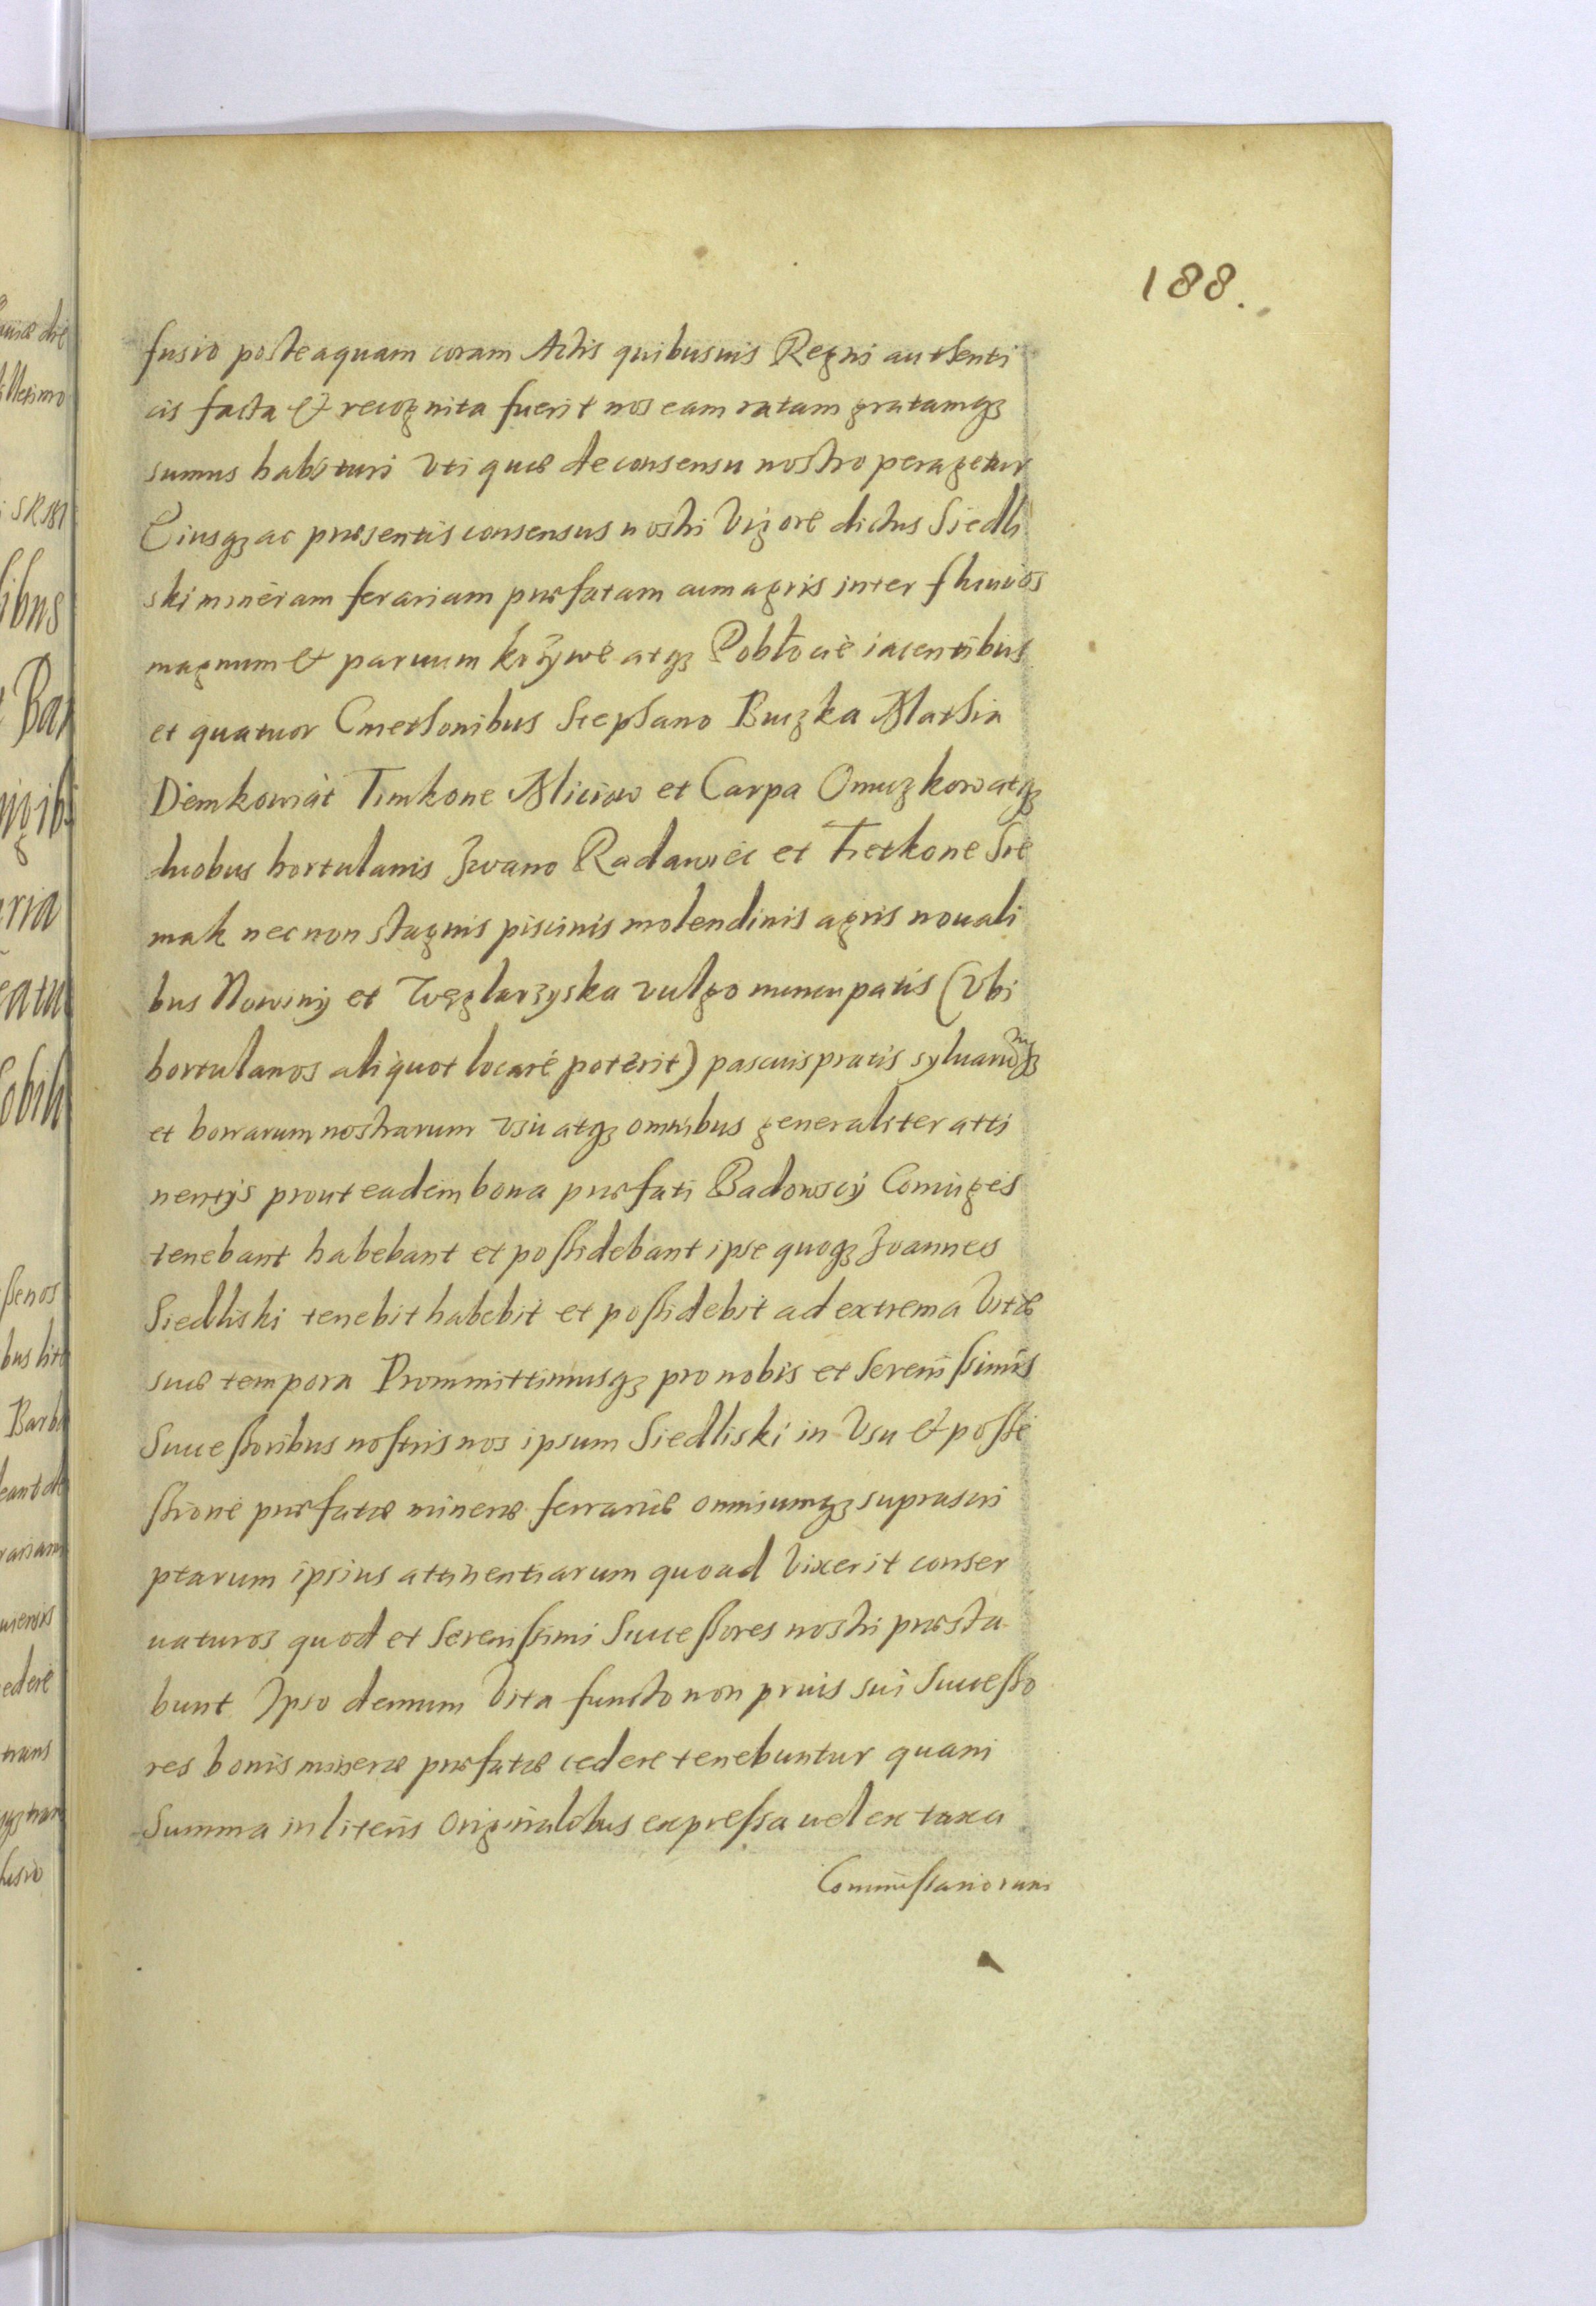 188.
fusio posteaquam coram Actis quibusuis Regni authenti
cis facta & recognita fuerit nos eam ratam gratamqȝ
sumus habituri Vti quæ de consensu nostro peragetur
Eiusqȝ ac præsentis consensus nostri Vigore dictus Siedli
ski mineram ferariam præfatam cum agris inter fluuios
magnum & paruum krzywe atqȝ Pobłocie iacentibus
et quatuor Cmethonibus Stephano Buczka Mathia
Demkowiat Timkone Miciow et Carpa Omuzkow atqȝ
duobus hortulanis Iwano Radawiec et Fietkone Sie
mak nec non stagnis piscinis molendinis agris nouali
bus Nowiny et Węglarzyska vulgo nuncupatis (Vbi
hortulanos aliquot locare poterit) pascuis pratis syluarumqȝ
et borrarum nostrarum vsu atqȝ omnibus generaliter atti
nentÿs prout eadem bona præfati Badowscÿ Coniuges
tenebant habebant et possidebant ipse quoqȝ Ioannes
Siedliski tenebit habebit et possidebit ad extrema Vitæ
suæ tempora Prommittimusqȝ pro nobis et Serenissimis
Successoribus nostris nos ipsum Siedliski in Vsu & posse
ssione præfatæ mineræ ferrariæ omniumqȝ suprascri
ptarum ipsius attinentiarum quoad Vixerit conser
uaturos quod et Serenissimi Successores nostri præsta
bunt Ipso demum Vita functo non prius sui Successo
res bonis mineræ præfatæ cedere tenebuntur quam
Summa in literis Originalibus expressa uel ex taxa
Commissariorum